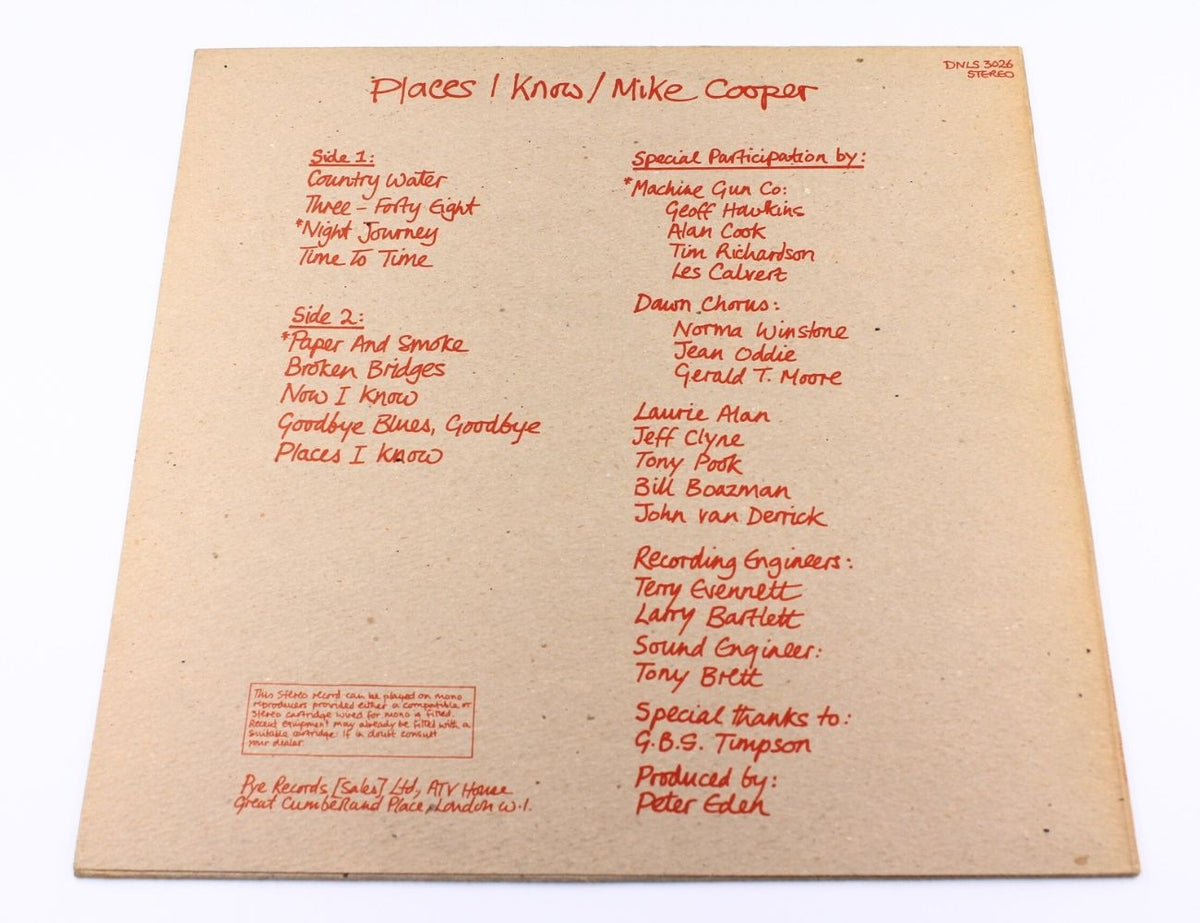 Places I Know / Mike Cooper
DNLS 3026
STEREO
Side 1:
Country Water
Three - Forty Eight
*Night Journey
Time To Time
Side 2:
*Paper And Smoke
Broken Bridges
Now I Know
Goodbye Blues, Goodbye
Places I Know
This Stereo record can be played on mono
reproducers provided either a compatible or
stereo cartridge wired for mono is fitted.
Recent equipment may already be fitted with a
suitable cartridge. If in doubt consult
your dealer.
Pye Records [Sales] Ltd, ATV House
Great Cumberland Place, London W.1.
Special Participation by:
*Machine Gun Co:
Geoff Hawkins
Alan Cook
Tim Richardson
Les Calvert
Dawn Chorus:
Norma Winstone
Jean Oddie
Gerald T. Moore
Laurie Alan
Jeff Clyne
Tony Pook
Bill Boazman
John van Derrick
Recording Engineers:
Terry Evennett
Larry Bartlett
Sound Engineer:
Tony Brett
Special thanks to:
G.B.S. Timpson
Produced by:
Peter Eden